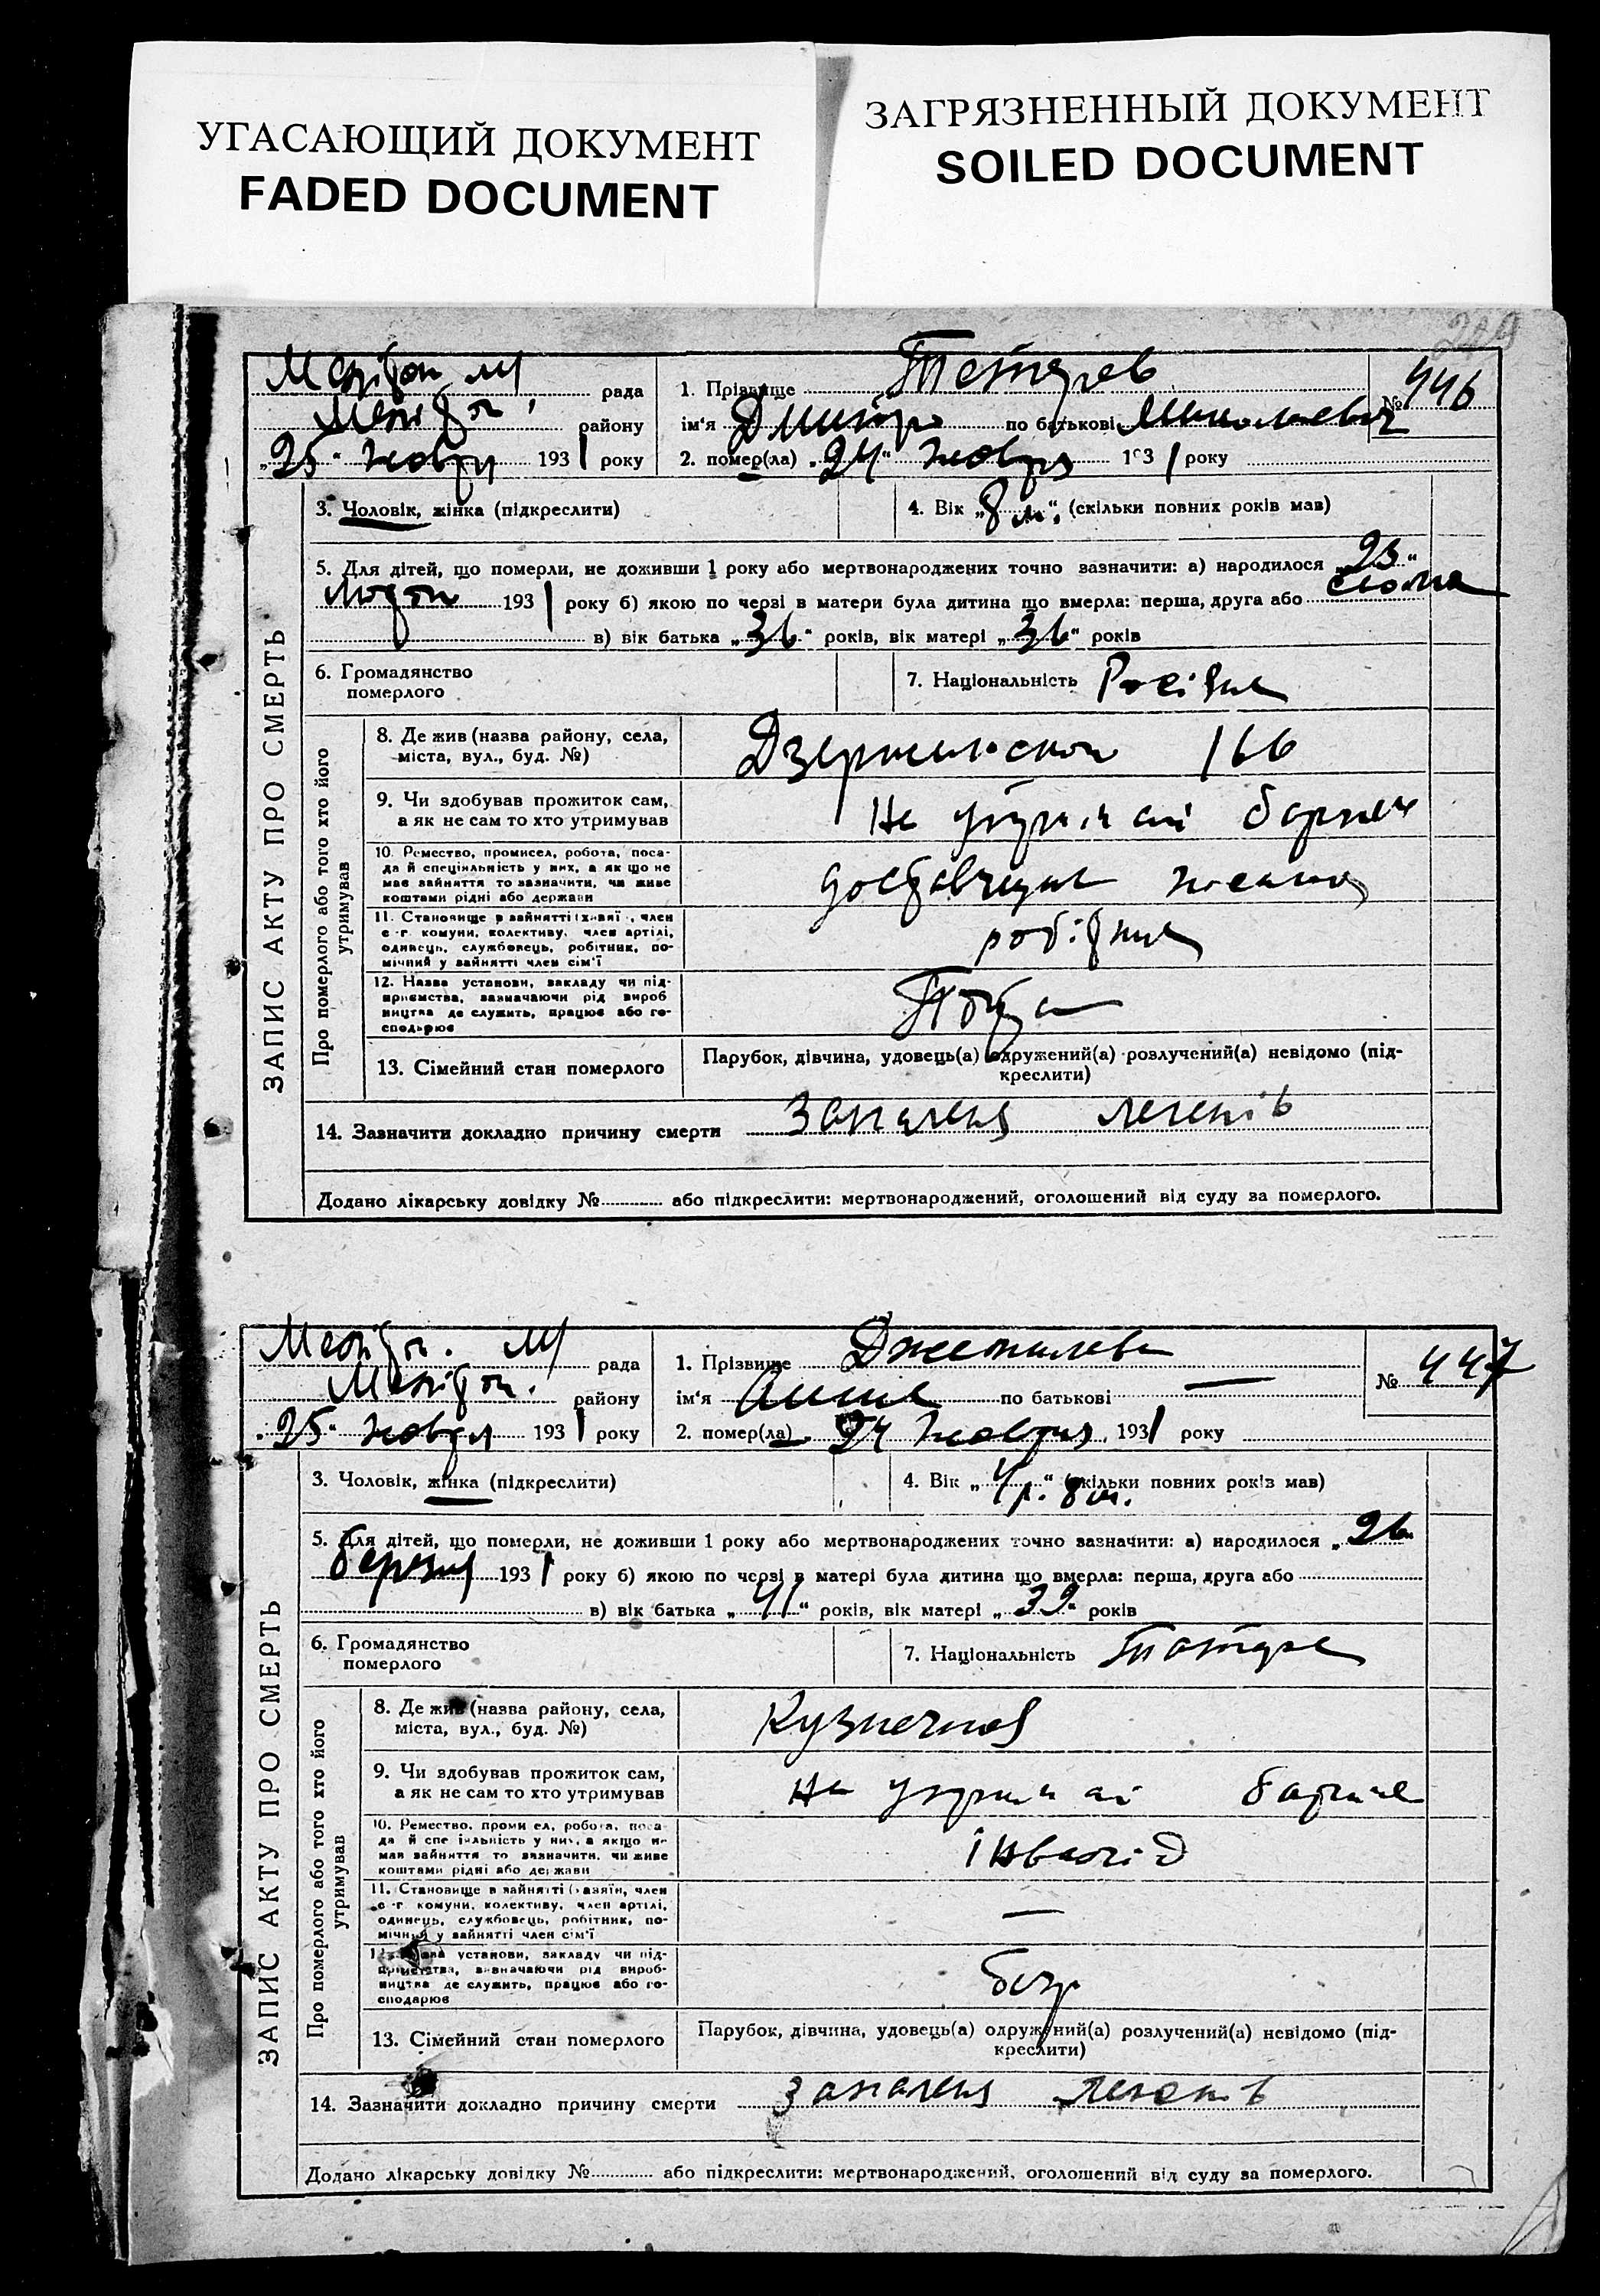 УГАСАЮЩИЙ ДОКУМЕНТ
FADED DOCUMENT
ЗАГРЯЗНЕННЫЙ ДОКУМЕНТ
SOILED DOCUMENT
ЗАПИС АКТУ ПРО СМЕРТЬ
рада
району
„25“ 1931 року
1. Прізвище
№ 446
ім'я Дмитро по батькові Миколаевич
2. помер(ла) „24“ жовтня 1931 року
3. Чоловік, жінка (підкреслити)
4. Вік „8 м.“ (скільки повних років мав)
5. Для дітей, що померли, не доживши 1 року або мертвонароджених точно зазначити: а) народилося „23“
лютого 1931 року б) якою по черзі в матери була дитина що вмерла: перша, друга або сьома
в) вік батька „36“ років, вік матері „36“ років
6. Громадянство
померлого
7. Національність
Про померлого або того хто його
утримував
8. Де жив (назва району, села,
міста, вул., буд. №)
166
9. Чи здобував прожиток сам,
а як не сам то хто утримував
На утриман батька
10. Ремество, промисел, робота, поса-
да й спеціяльність у них, а як що не
має зайняття то зазначити, чи живе
коштами рідні або держави
11. Становище в зайнятті (хазяї, член
с -г. комуни, колективу, член артілі,
одинець, службовець, робітник, по-
мічний у зайнятті член сім'ї
робітник
12. Назва установи, закладу чи під-
приємства, зазначаючи рід вироб
ництва де служить, працює або го-
сподарює
13. Сімейний стан померлого
Парубок, дівчина, удовець(а) одружений(а) розлучений(а) невідомо (під-
креслити)
14. Зазначити докладно причину смерти Запаленя легенів
Додано лікарську довідку № або підкреслити: мертвонароджений, оголошений від суду за померлого.
ЗАПИС АКТУ ПРО СМЕРТЬ
рада
району
„25“ 1931 року
1. Прізвище Джемилева
№ 447
ім'я по батькові —
2. помер(ла) 24 жовтня 1931 року
3. Чоловік, жінка (підкреслити)
4. Вік „ “ (скільки повних років мав)
5. Для дітей, що померли, не доживши 1 року або мертвонароджених точно зазначити: а) народилося „26“
березня 1931 року б) якою по черзі в матері була дитина що вмерла: перша, друга або
в) вік батька „41“ років, вік матері „39“ років
6. Громадянство
померлого
7. Національність Татарка
Про померлого або того хто його
утримував
8. Де жив (назва району, села,
міста, вул., буд. №)
Кузнечная
9. Чи здобував прожиток сам,
а як не сам то хто утримував
На утриман батька
10. Ремество, промисел, робота, поса-
да й спеціяльність у них, а якщо не
має зайняття то зазначити, чи живе
коштами рідні або держави
інвалід
11. Становище в зайнятті (хазяїн, член
с -г. комуни, колективу, член артілі,
одинець, службовець, робітник, по-
мічний у зайнятті член сім'ї
—
12. Назва установи, закладу чи під-
приємства, зазначаючи рід вироб-
ництва де служить, працює або го-
сподарює
безр
13. Сімейний стан померлого
Парубок, дівчина, удовець(а) одружений(а) розлучений(а) невідомо (під-
креслити)
14. Зазначити докладно причину смерти запаленя легенів
Додано лікарську довідку № або підкреслити: мертвонароджений, оголошений від суду за померлого.